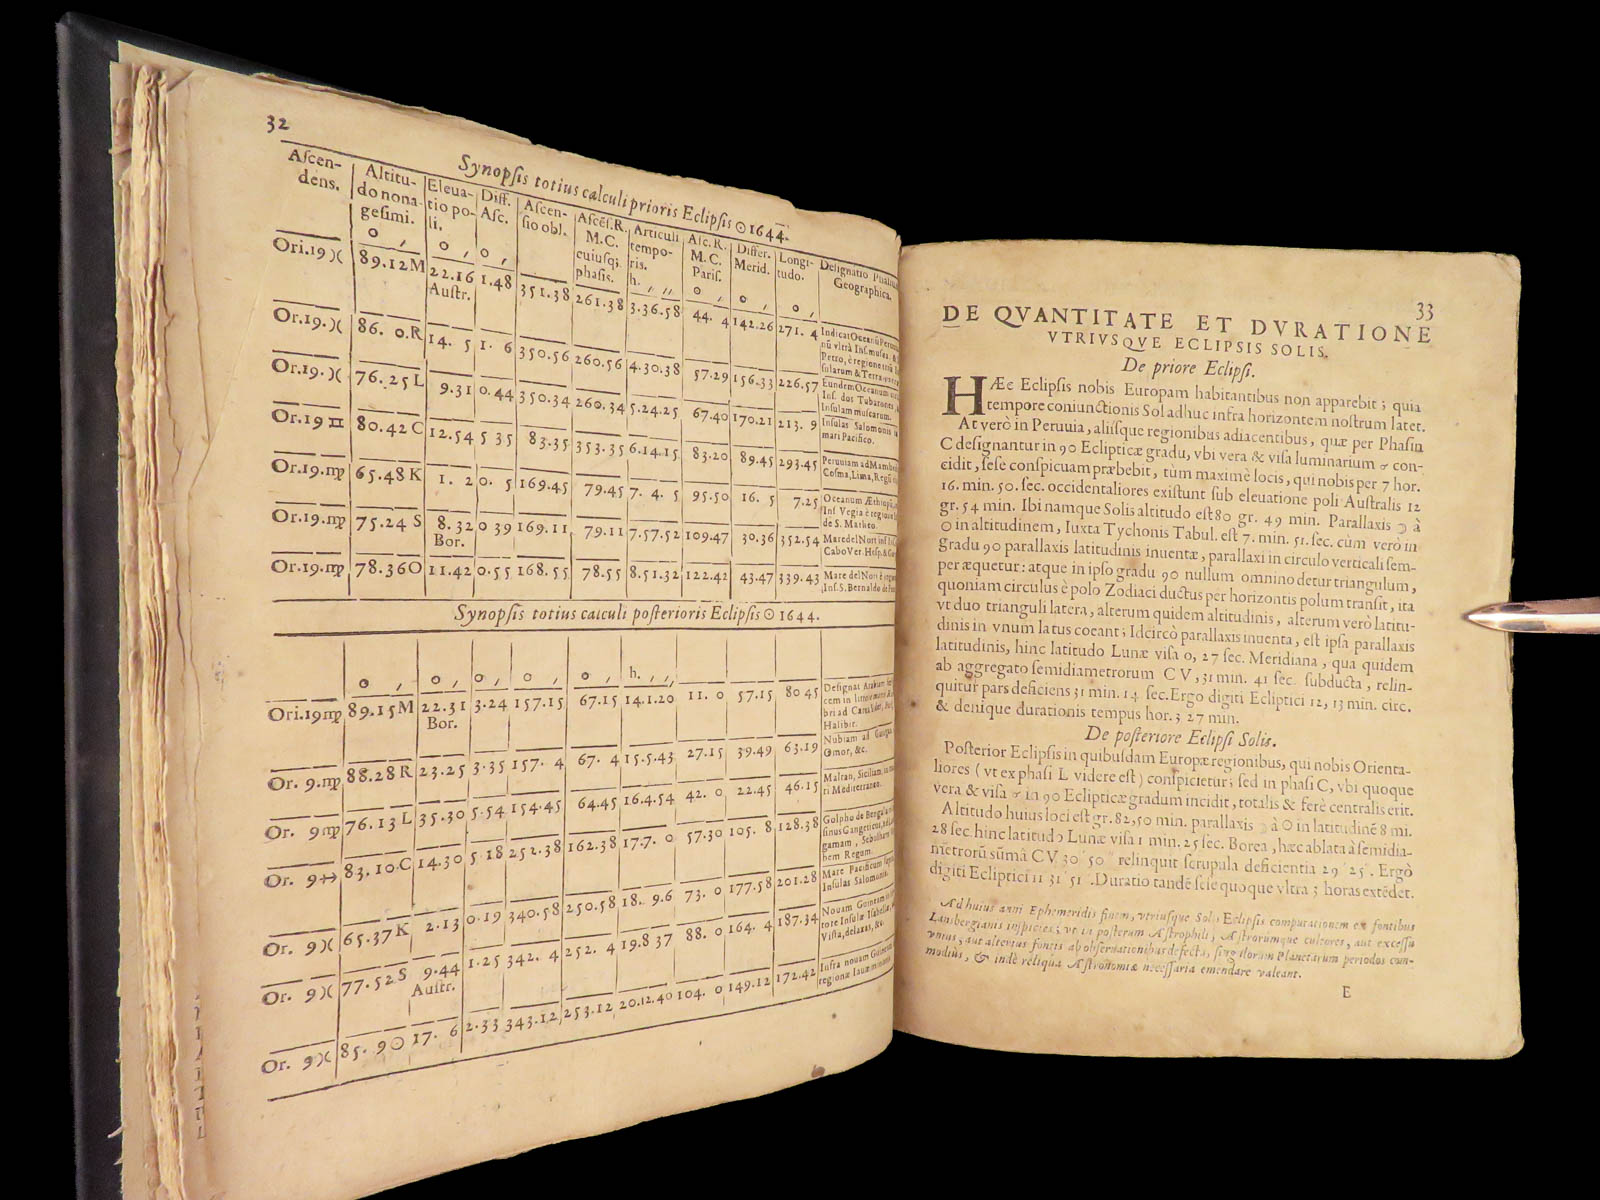 32
Synopſis totius calculi prioris Eclipſis ☉ 1644.
Aſcen- Altitu- Eleua- Diff. Aſcen- Aſcēſ.R. Articuli Aſc.R. Differ. Longi- Deſignatio
dens. do nona tio po- Aſc. ſio obl. M.C. tempo- M.C. Merid. tudo. Geographica.
geſimi. li. cuiuſq; ris. Pariſ.
phaſis. h. , ,,
Ori.19 )( 89.12M 22.16 1.48 351.38 261.38 3.36.58 44. 4 142.26 271. 4
Auſtr.
Or.19. )( 86. 0.R 14. 5 1. 6 350.56 260.56 4.30.38 57.29 156.33 226.57
Or.19. )( 76.25 L 9.31 0.44 350.34 260.34 5.24.25 67.40 170.21 213. 9
Inſulas Salomonis
mari Pacifico.
Or.19 ♊ 80.42 C 12.54 5 35 83.35 353.35 6.14.15 83.20 89.45 293.45
Or.19.♍ 65.48 K 1. 2 0. 5 169.45 79.45 7. 4. 5 95.50 16. 5 7.25
Or.19.♍ 75.24 S 8.32 0 39 169.11 79.11 7.57.52 109.47 30.36 352.54
Bor.
Or.19.♍ 78.36O 11.42 0.55 168.55 78.55 8.51.32 122.42 43.47 339.43
Synopſis totius calculi poſterioris Eclipſis ☉ 1644.
Ori.19♍ 89.15M 22.31 3.24 157.15 67.15 14.1.20 11. 0 57.15 80 45
Bor.
Or. 9.♍ 88.28 R 23.25 3.35 157. 4 67. 4 15.5.43 27.15 39.49 63.19
Or. 9♍ 76.13 L 35.30 5.54 154.45 64.45 16.4.54 42. 0 22.45 46.15
Or. 9♐ 83.10.C 14.30 5 18 252.38 162.38 17.7. 0 57.30 105. 8 128.38
Or. 9)( 65.37 K 2.13 0.19 340.58 250.58 18. 9.6 73. 0 177.58 201.28
Or. 9)( 77.52 S 9.44 1.25 342. 4 252. 4 19.8 37 88. 0 164. 4 187.34
Auſtr.
Or. 9)( 85. 9 ☉ 17. 6 2.33 343.12 253.12 20.12.40 104. 0 149.12 172.42
33
DE QVANTITATE ET DVRATIONE
VTRIVSQVE ECLIPSIS SOLIS.
De priore Eclipſi.
HÆc Eclipſis nobis Europam habitantibus non apparebit; quia
tempore coniunctionis Sol adhuc infra horizontem noſtrum latet.
At verò in Peruuia, aliiſque regionibus adiacentibus, quæ per Phaſin
C deſignantur in 90 Eclipticæ gradu, vbi vera & viſa luminarium ☌ con-
cidit, ſeſe conſpicuam præbebit, tùm maximè locis, qui nobis per 7 hor.
16. min. 50. ſec. occidentaliores exiſtunt ſub eleuatione poli Auſtralis 12
gr. 54 min. Ibi namque Solis altitudo eſt 80 gr. 49 min. Parallaxis ☽ à
☉ in altitudinem, Iuxta Tychonis Tabul. eſt 7. min. 51. ſec. cùm verò in
gradu 90 parallaxis latitudinis inuentæ, parallaxi in circulo verticali ſem-
per æquetur: atque in ipſo gradu 90 nullum omnino detur triangulum,
quoniam circulus è polo Zodiaci ductus per horizontis polum tranſit, ita
vt duo trianguli latera, alterum quidem altitudinis, alterum verò latitu-
dinis in vnum latus coeant; Idcircò parallaxis inuenta, eſt ipſa parallaxis
latitudinis, hinc latitudo Lunæ viſa 0, 27 ſec. Meridiana, qua quidem
ab aggregato ſemidiametrorum C V, 31 min. 41 ſec. ſubducta, relin-
quitur pars deficiens 31 min. 14 ſec. Ergo digiti Ecliptici 12, 13 min. circ.
& denique durationis tempus hor. 3 27 min.
De poſteriore Eclipſi Solis.
Poſterior Eclipſis in quibuſdam Europæ regionibus, qui nobis Orienta-
liores (vt ex phaſi L videre eſt) conſpicietur; ſed in phaſi C, vbi quoque
vera & viſa ☌ in 90 Eclipticæ gradum incidit, totalis & ferè centralis erit.
Altitudo huius loci eſt gr. 82,50 min. parallaxis ☽ à ☉ in latitudinē 8 mi.
28 ſec. hinc latitudo Lunæ viſa 1 min. 25 ſec. Borea, hæc ablata à ſemidia-
metrorū ſūmâ CV 30 50 relinquit ſcrupula deficientia 29 25. Ergò
digiti Ecliptici 11 31 51. Duratio tandē ſeſe quoque vltra 3 horas extēdet.
Ad huius anni Ephemeridis finem, vtriuſque Solis Eclipſis computationem ex fontibus
Lansbergianis inſpicies; vt in poſterum Aſtrophili, Aſtrorumque cultores, aut exceſſu
vnius, aut alterius fontis ab obſeruationibus defectu, ſingulorum Planetarum periodos com-
modiùs, & indè reliqua Aſtronomiæ neceſſaria emendare valeant.
E